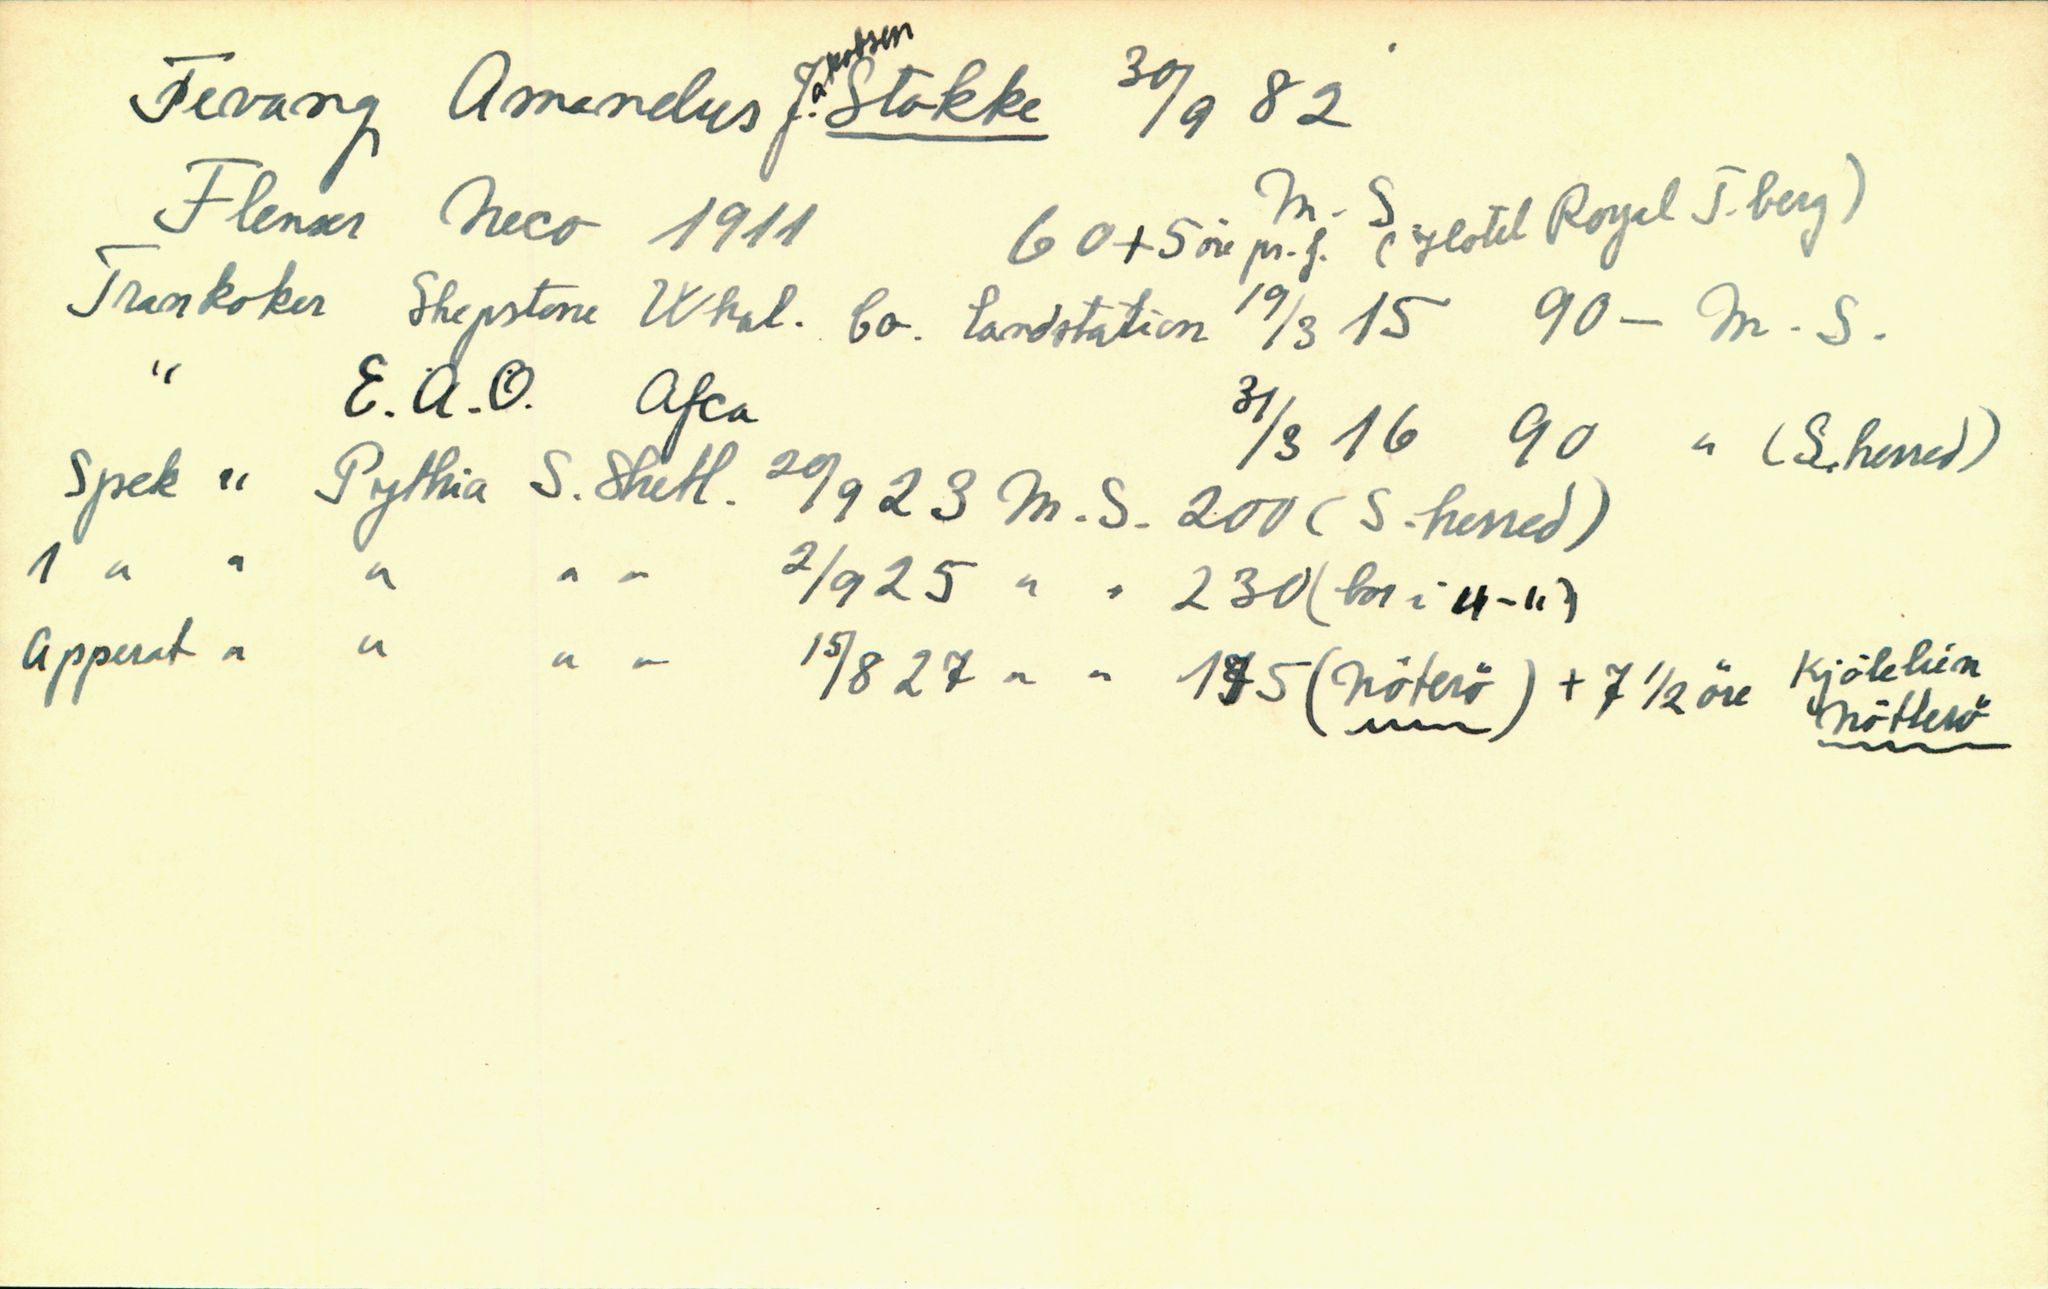 Tevang Amandus J. Jakobsen Stokke 30/9 82
Flenser Neco 1911 60 + 5 öre pr. f. M.S. (Hotel Royal T.berg)
Trankoker Shepstone Whal. Co. Landstation 19/3 15 90 – M.S.
" E.A.O. Afca 31/3 16 90 " (S.herred)
Spek " Pythia S. Shetl. 20/9 23 M.S. 200 (S.herred)
1 " " " " " 2/9 25 " " 230 (bor i "-")
Apperat " " " " 15/8 27 " " 175 (Nöterö) + 7 1/2 öre
Nötterö